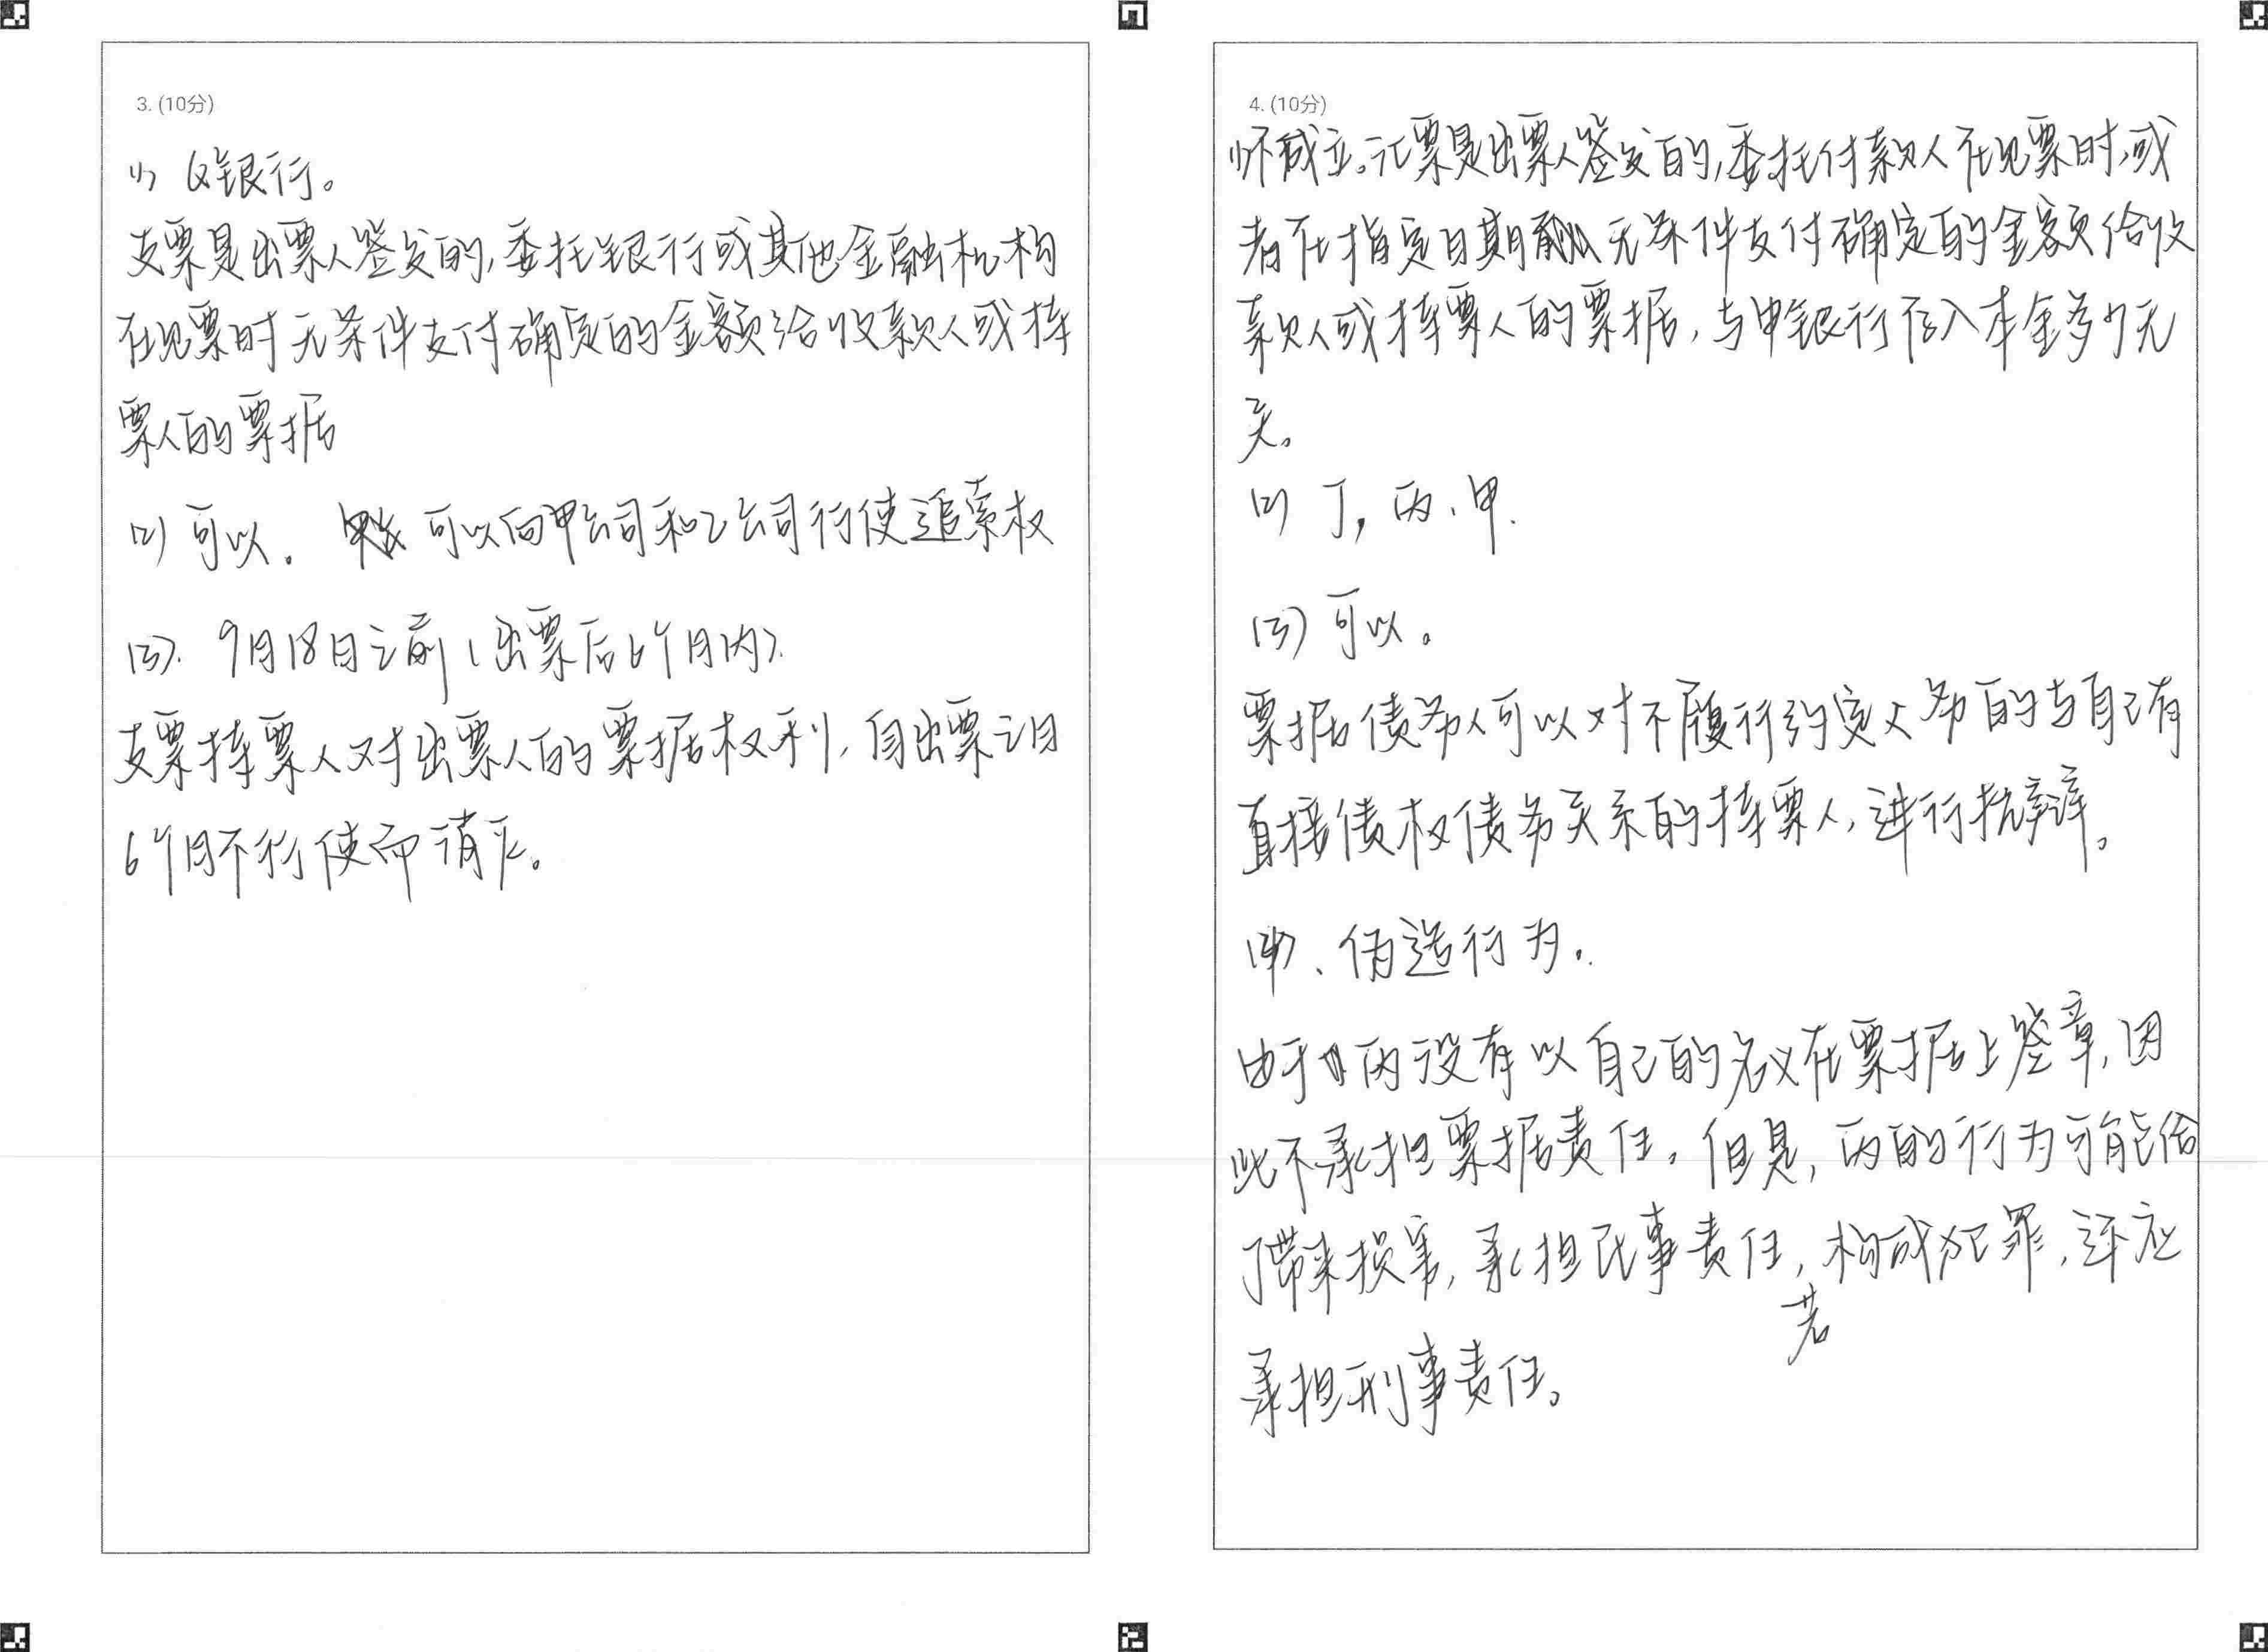 3. (10分)
(1) G银行。
支票是出票人签发的,委托银行或其他金融机构
在见票时无条件支付确定的金额给收款人或持
票人的票据
(2) 可以。 可以向甲公司和乙公司行使追索权
(3). 9月18日之前(出票后6个月内).
支票持票人对出票人的票据权利,自出票之日
6个月不行使而消灭。
4. (10分)
(1)不成立。汇票是出票人签发的,委托付款人在见票时,或
者在指定日期 无条件支付确定的金额给收
款人或持票人的票据,与甲银行存入本金多少无
关。
(2) 丁,丙、甲.
(3) 可以。
票据债务人可以对不履行约定义务的与自己有
直接债权债务关系的持票人,进行抗辩。
(4)、伪造行为.
由于丙没有以自己的名义在票据上签章,因
此不承担票据责任。但是,丙的行为可能给
丁带来损害,承担民事责任,若构成犯罪,还应
承担刑事责任。